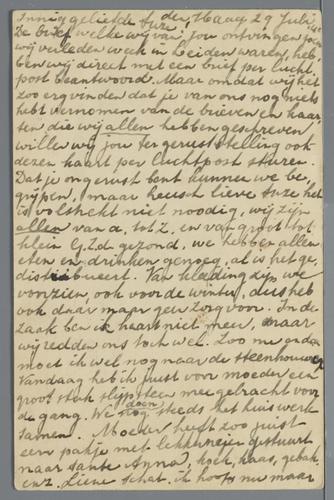 Innig geliefde Suze, den Haag 29 Juli
De brief welke wij van jou ontvingen, toen
wij verleden week in Leiden waren, heb-
ben wij direct met een brief per lucht-
post beantwoord. Maar omdat wij het
zoo erg vinden dat je van ons nog niets
hebt vernomen van de brieven en kaar-
ten die wij allen hebben geschreven
willen wij jou ter geruststelling ook
dezen kaart per luchtpost sturen.
Dat je ongerust bent kunnen we be-
grijpen, maar heusch lieve Suze het
is volstrekt niet noodig, wij zijn
allen van a. tot z. en van groot tot
klein G.z.d. gezond, we hebben allen
eten en drinken genoeg, al is het ge-
distribueerd. Van kleeding zijn we
voorzien, ook voor de winter, dus heb
ook daar maar geen zorg voor. In de
zaak ben ik haast niet meer, maar
wij redden ons toch wel. Zoo nu en dan
moet ik wel nog naar de steenhouwerij
Vandaag heb ik juist voor moeder een
groot stuk slijpsteen mee gebracht voor
de gang. We doen nog steeds het huiswerk
samen. Moeder heeft zoo juist
een pakje met lekkernijen gestuurt
naar tante Anna, koek, kaas, gebak
enz. Lieve schat, ik hoop nu maar